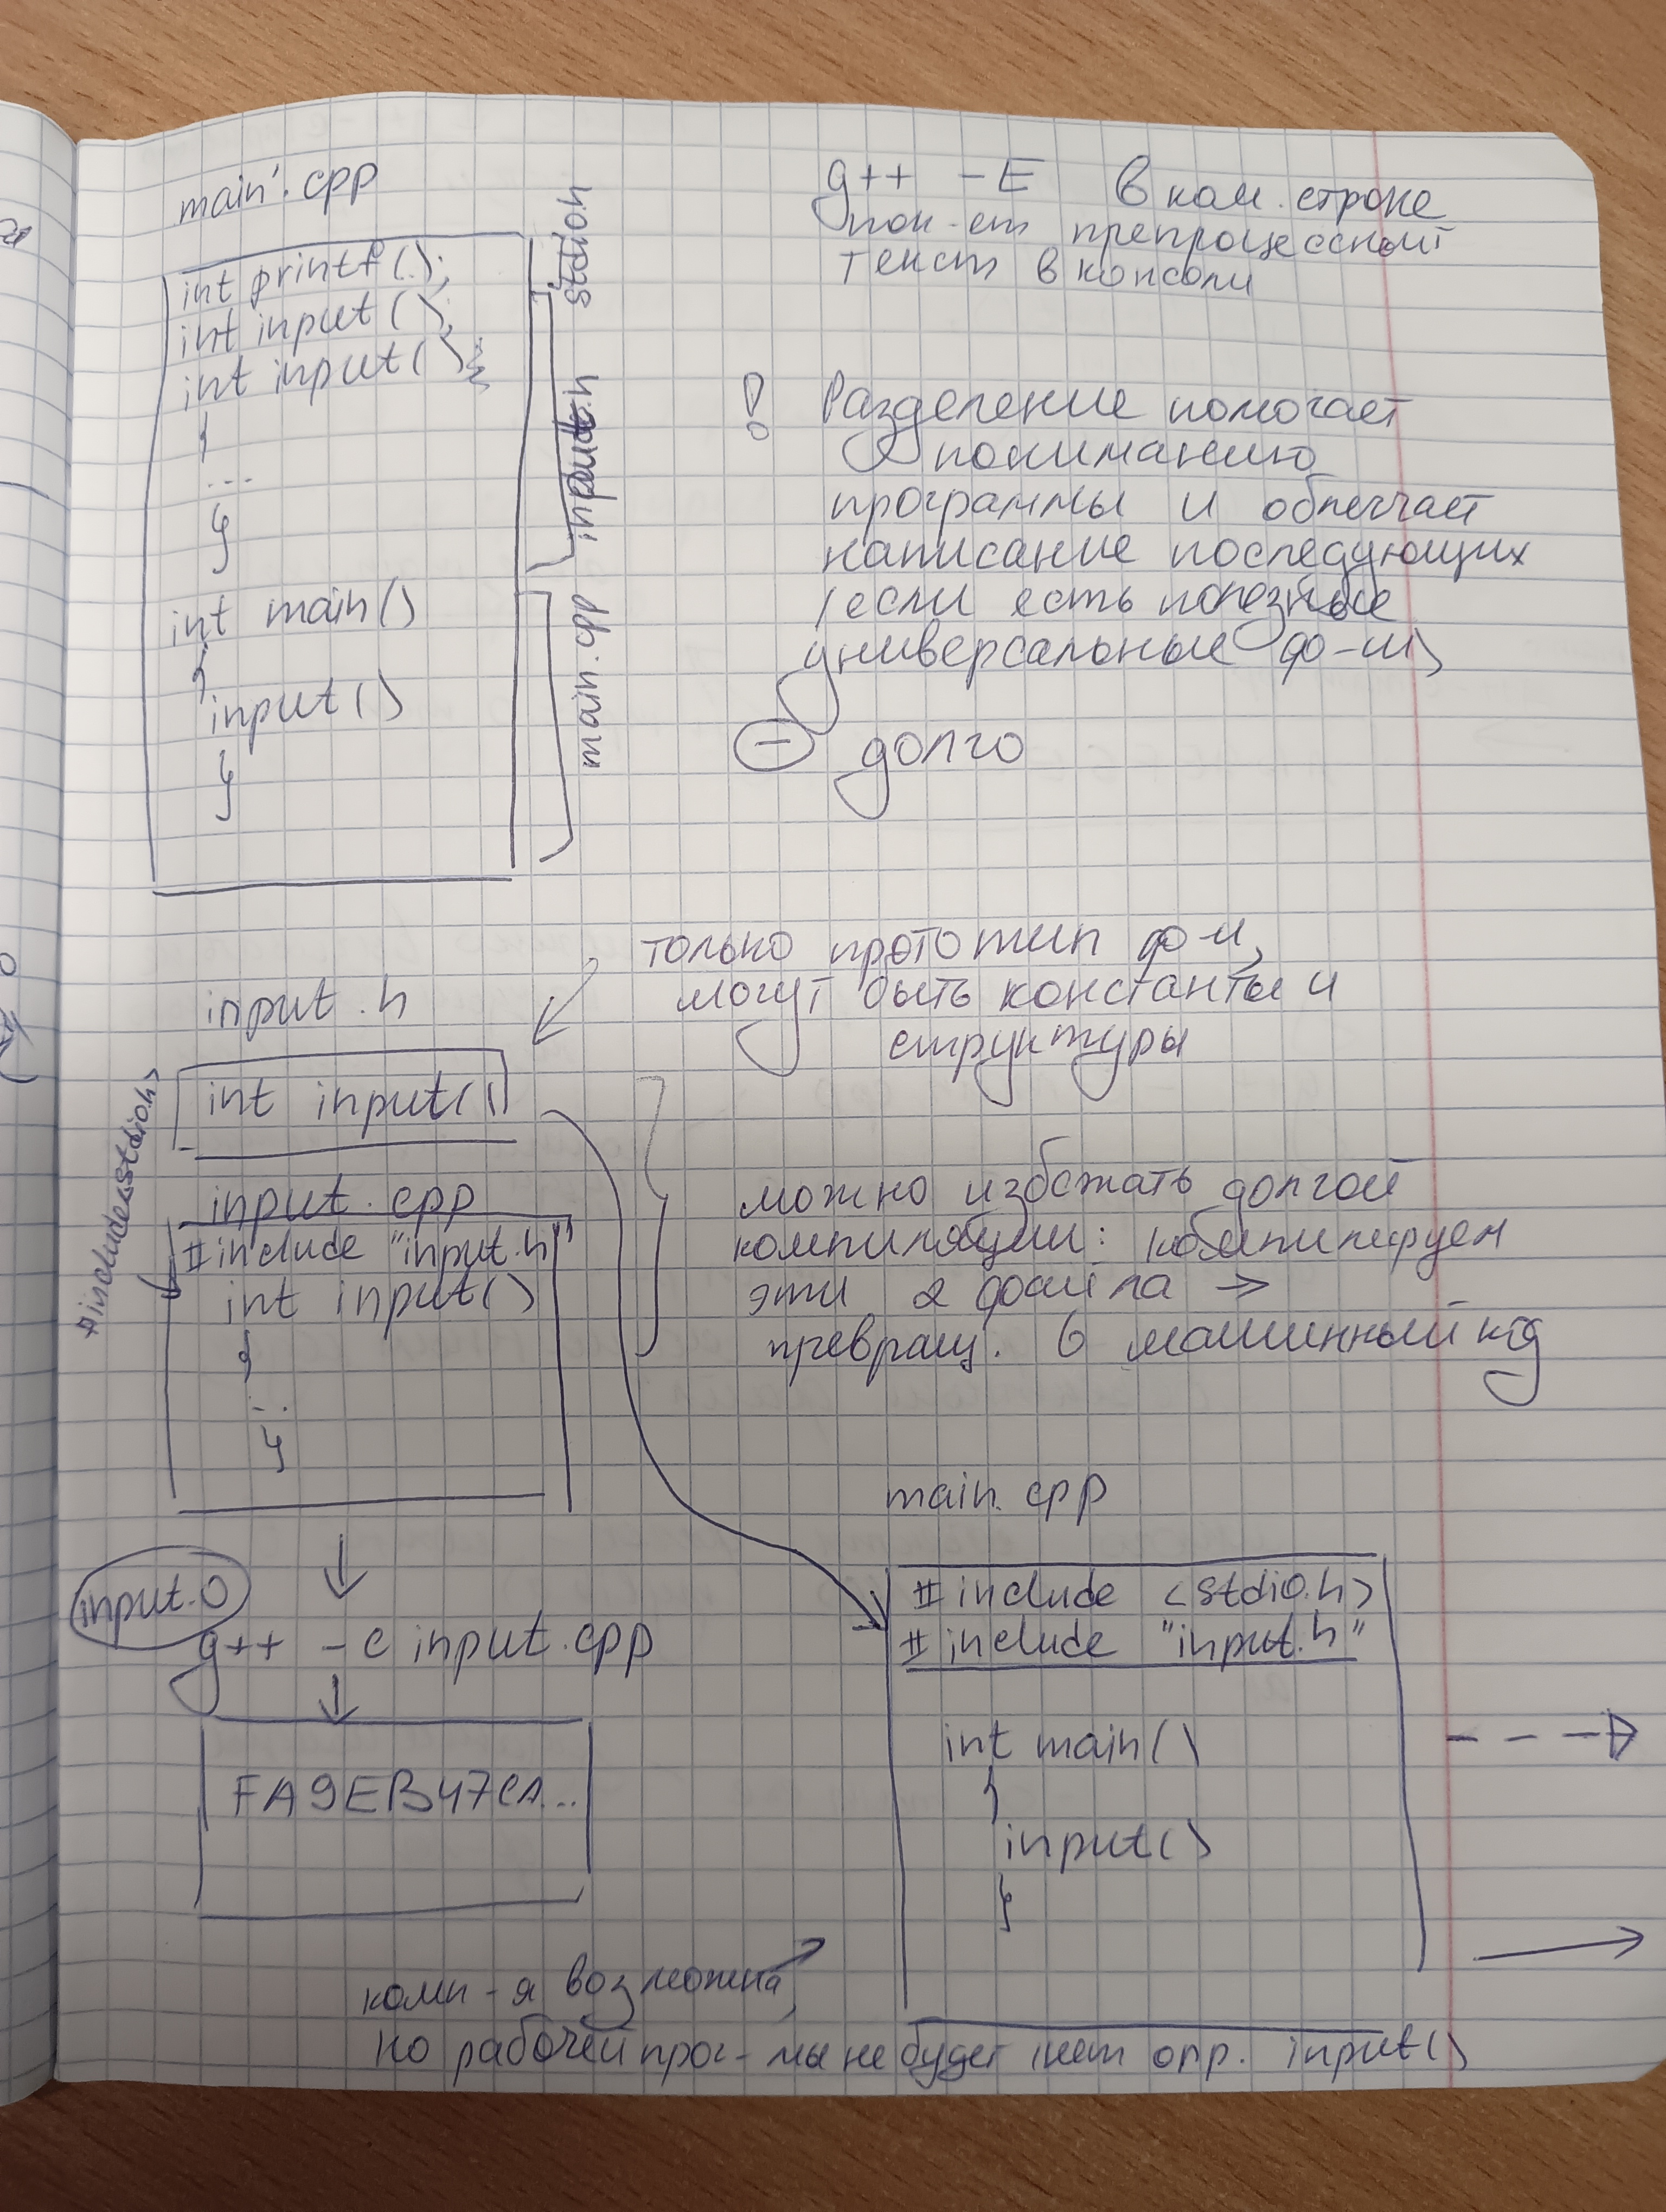 main'.cpp
int printf();
int input();
int input()
{
...
}
int main()
{
input()
}
stdio.h
input.h
main.cpp
g++ -E в ком. строке
пок-ет препроцессный
текст в консоли
! Разделение помогает
пониманию
программы и облегчает
написание последующих
(если есть полезные
универсальные ф-ии)
⊖ долго
только прототип ф-и,
могут быть константы и
структуры
input.h
int input()
#include<stdio.h>
input.cpp
#include "input.h"
int input()
{
...
}
можно избежать долгой
компиляции: компилируем
эти 2 файла →
превращ. в машинный код
input.o
g++ -c input.cpp
FA9EB47CA...
main.cpp
#include <stdio.h>
#include "input.h"
int main()
{
input()
}
комп-я возможна,
но рабочей прог-мы не будет (нет опр. input()